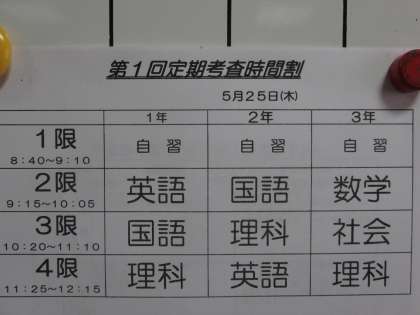 第1回定期考査時間割
5月25日(木)
1年 2年 3年
1限 自習 自習 自習
8:40～9:10
2限 英語 国語 数学
9:15～10:05
3限 国語 理科 社会
10:20～11:10
4限 理科 英語 理科
11:25～12:15